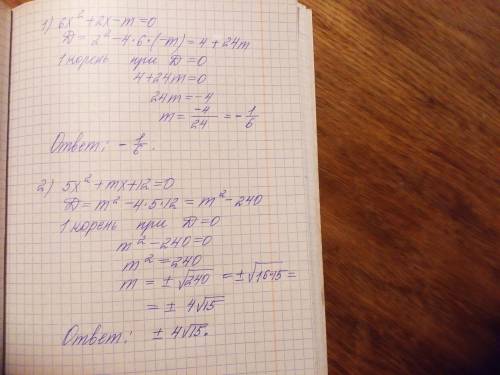 1) 6x² + 2x - m = 0
Д = 2² - 4 · 6 · (-m) = 4 + 24m
1 корень при Д = 0
4 + 24m = 0
24m = -4
m = -4/24 = - 1/6
Ответ: - 1/6.
2) 5x² + mx + 12 = 0
Д = m² - 4 · 5 · 12 = m² - 240
1 корень при Д = 0
m² - 240 = 0
m² = 240
m = ± √240 = ± √16·15 =
= ± 4√15
Ответ: ± 4√15.